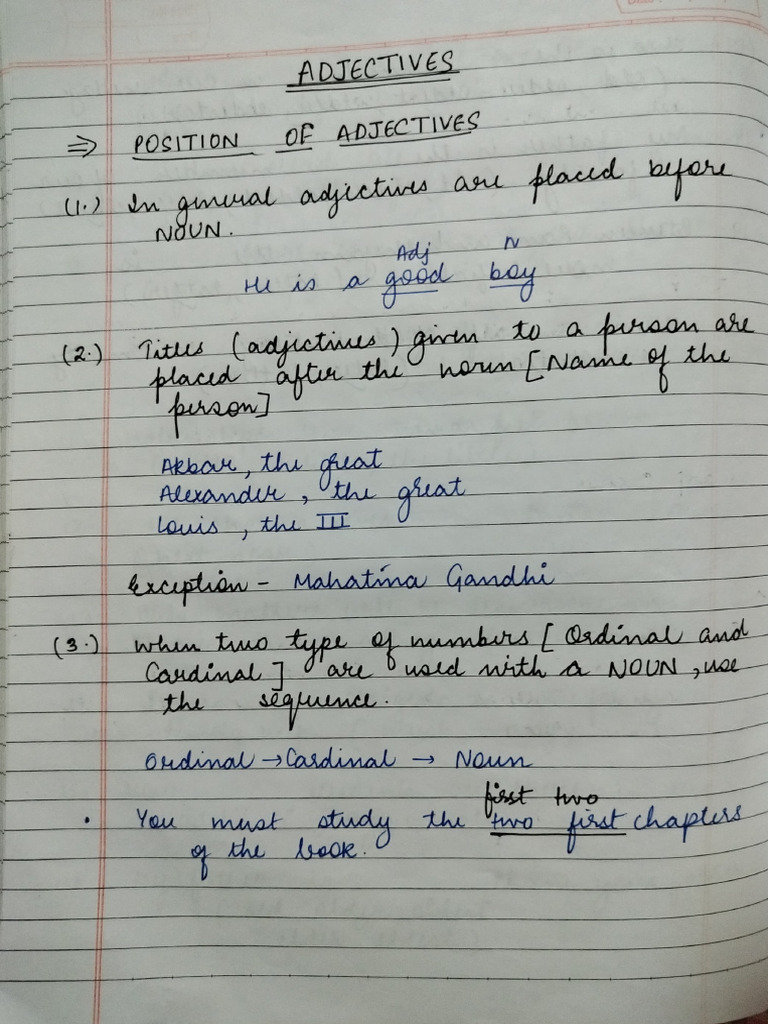 ADJECTIVES
⇒ POSITION OF ADJECTIVES
(1.) In general adjectives are placed before
NOUN.
Adj N
He is a good boy
(2.) Titles (adjectives) given to a person are
placed after the noun [Name of the
person]
Akbar, the great
Alexander, the great
Louis, the III
Exception - Mahatma Gandhi
(3.) when two type of numbers [Ordinal and
Cardinal] are used with a NOUN, use
the sequence.
Ordinal → Cardinal → Noun
first two
• You must study the two first chapters
of the book.